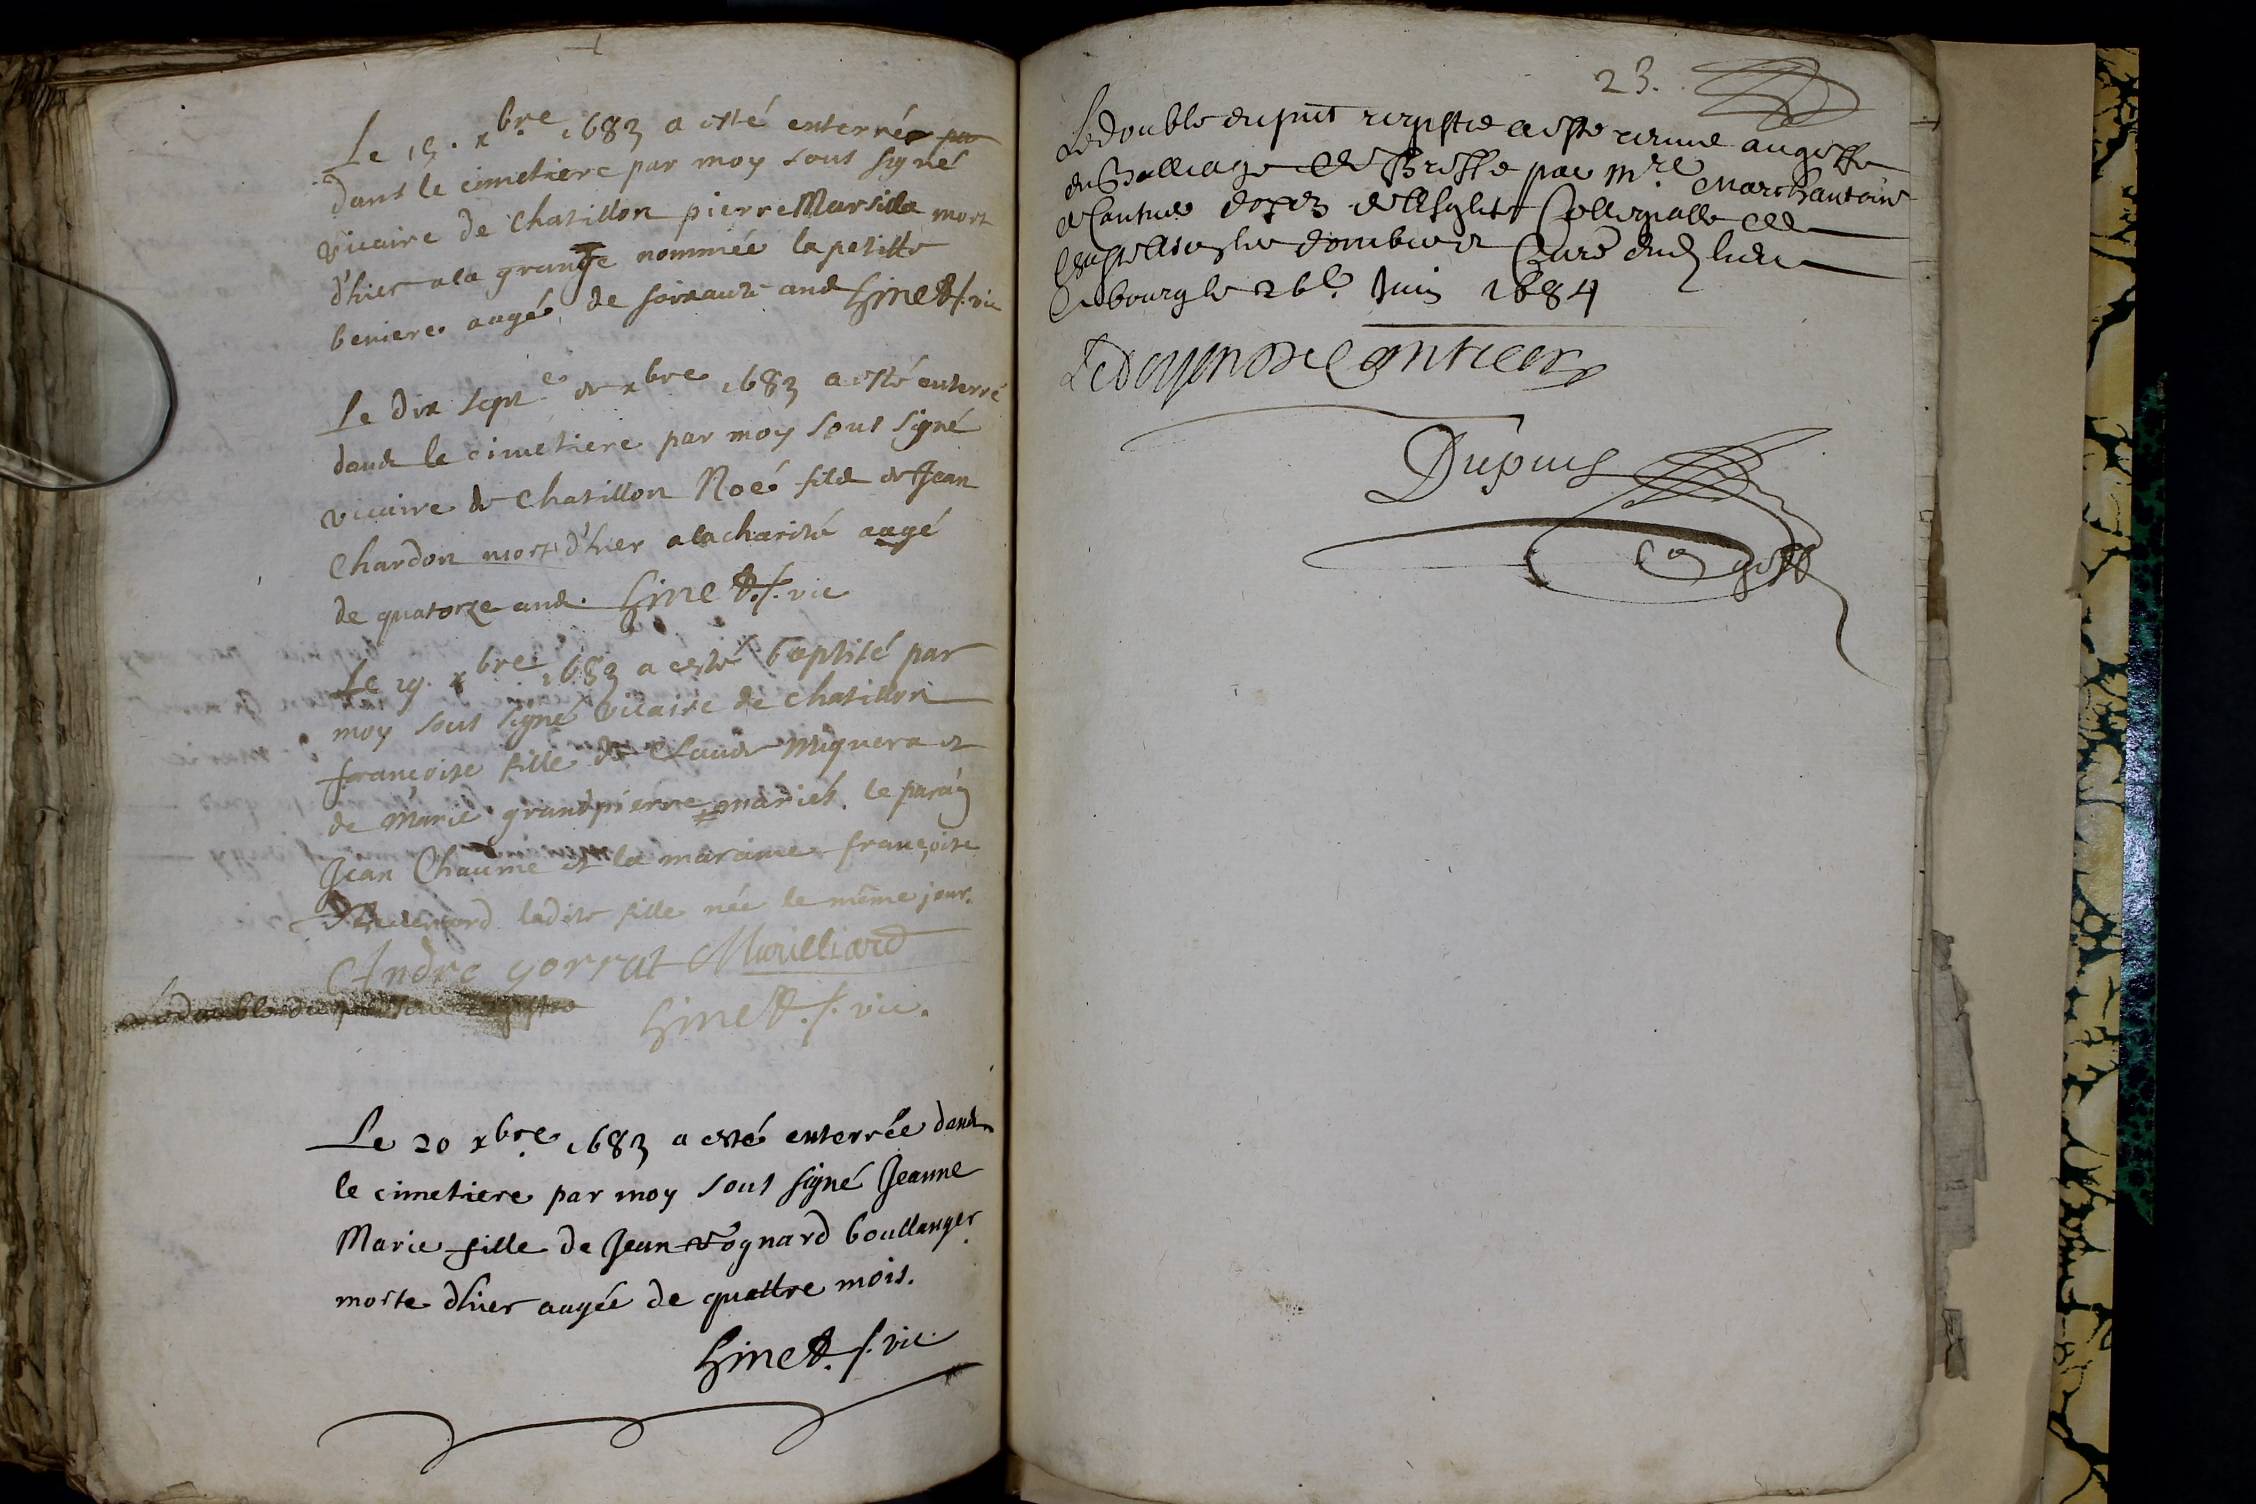 Le 15. xbre 1683 a esté enterrée
dans le cimetiere par moy sous signé
vicaire de Chatillon pierre Marsilla mort
d'hier a la grange nommée la petitte
beniere aagé de soixante ans Ginet. p. vic
Le dix septe de xbre 1683 a esté enterré
dans le cimetiere par moy sous signé
vicaire de Chatillon Noé fils de Jean
Chardon mort d'hier a la charité aagé
de quatorze ans. Ginet. p. vic
Le 19. xbre 1683 a esté baptisé par
moy sous signé vicaire de Chatillon
françoise fille de Claude Miquera et
de Marie grandpierre mariés. le parain
Jean Chaume et la maraine françoise
ladite fille née le même jour.
André gorrat Mivilliard
Le double du present registre
Ginet. p. vic.
Le 20 xbre 1683 a esté enterrée dans
le cimetiere par moy sous signé Jeanne
Marie fille de Jean vognard boullanger
morte d'hier aagée de quattre mois.
Ginet. p. vic
23.
Le double du pnt registre a esté remis au greffe
du Balliage de Bresse par mre Marc Anthoine
de doyen de l'Esglise Collegialle de
Curé dud lieu
A bourg le 26e Juin 1684
Le doyen de
Dupuis
Co greff